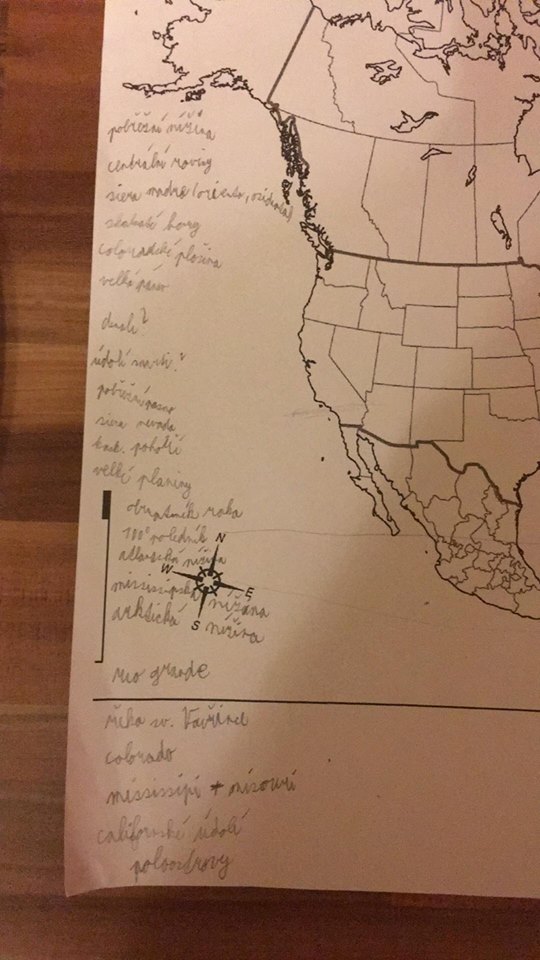 pobřežní nížina
centrální roviny
siera madre (orienta, ozidental)
skalnaté hory
coloradské plošina
velká pánev
denali ?
údolí smrti ?
pobřežní pásmo
siera nevada
kask. pohoří
velké planiny
obratník raka
100° poledník
atlantská nížina
mississipská nížina
arktická nížina
N
W
E
S
rio grande
řeka sv. Vavřince
colorado
mississipi + misouri
californské údolí
poloostrovy